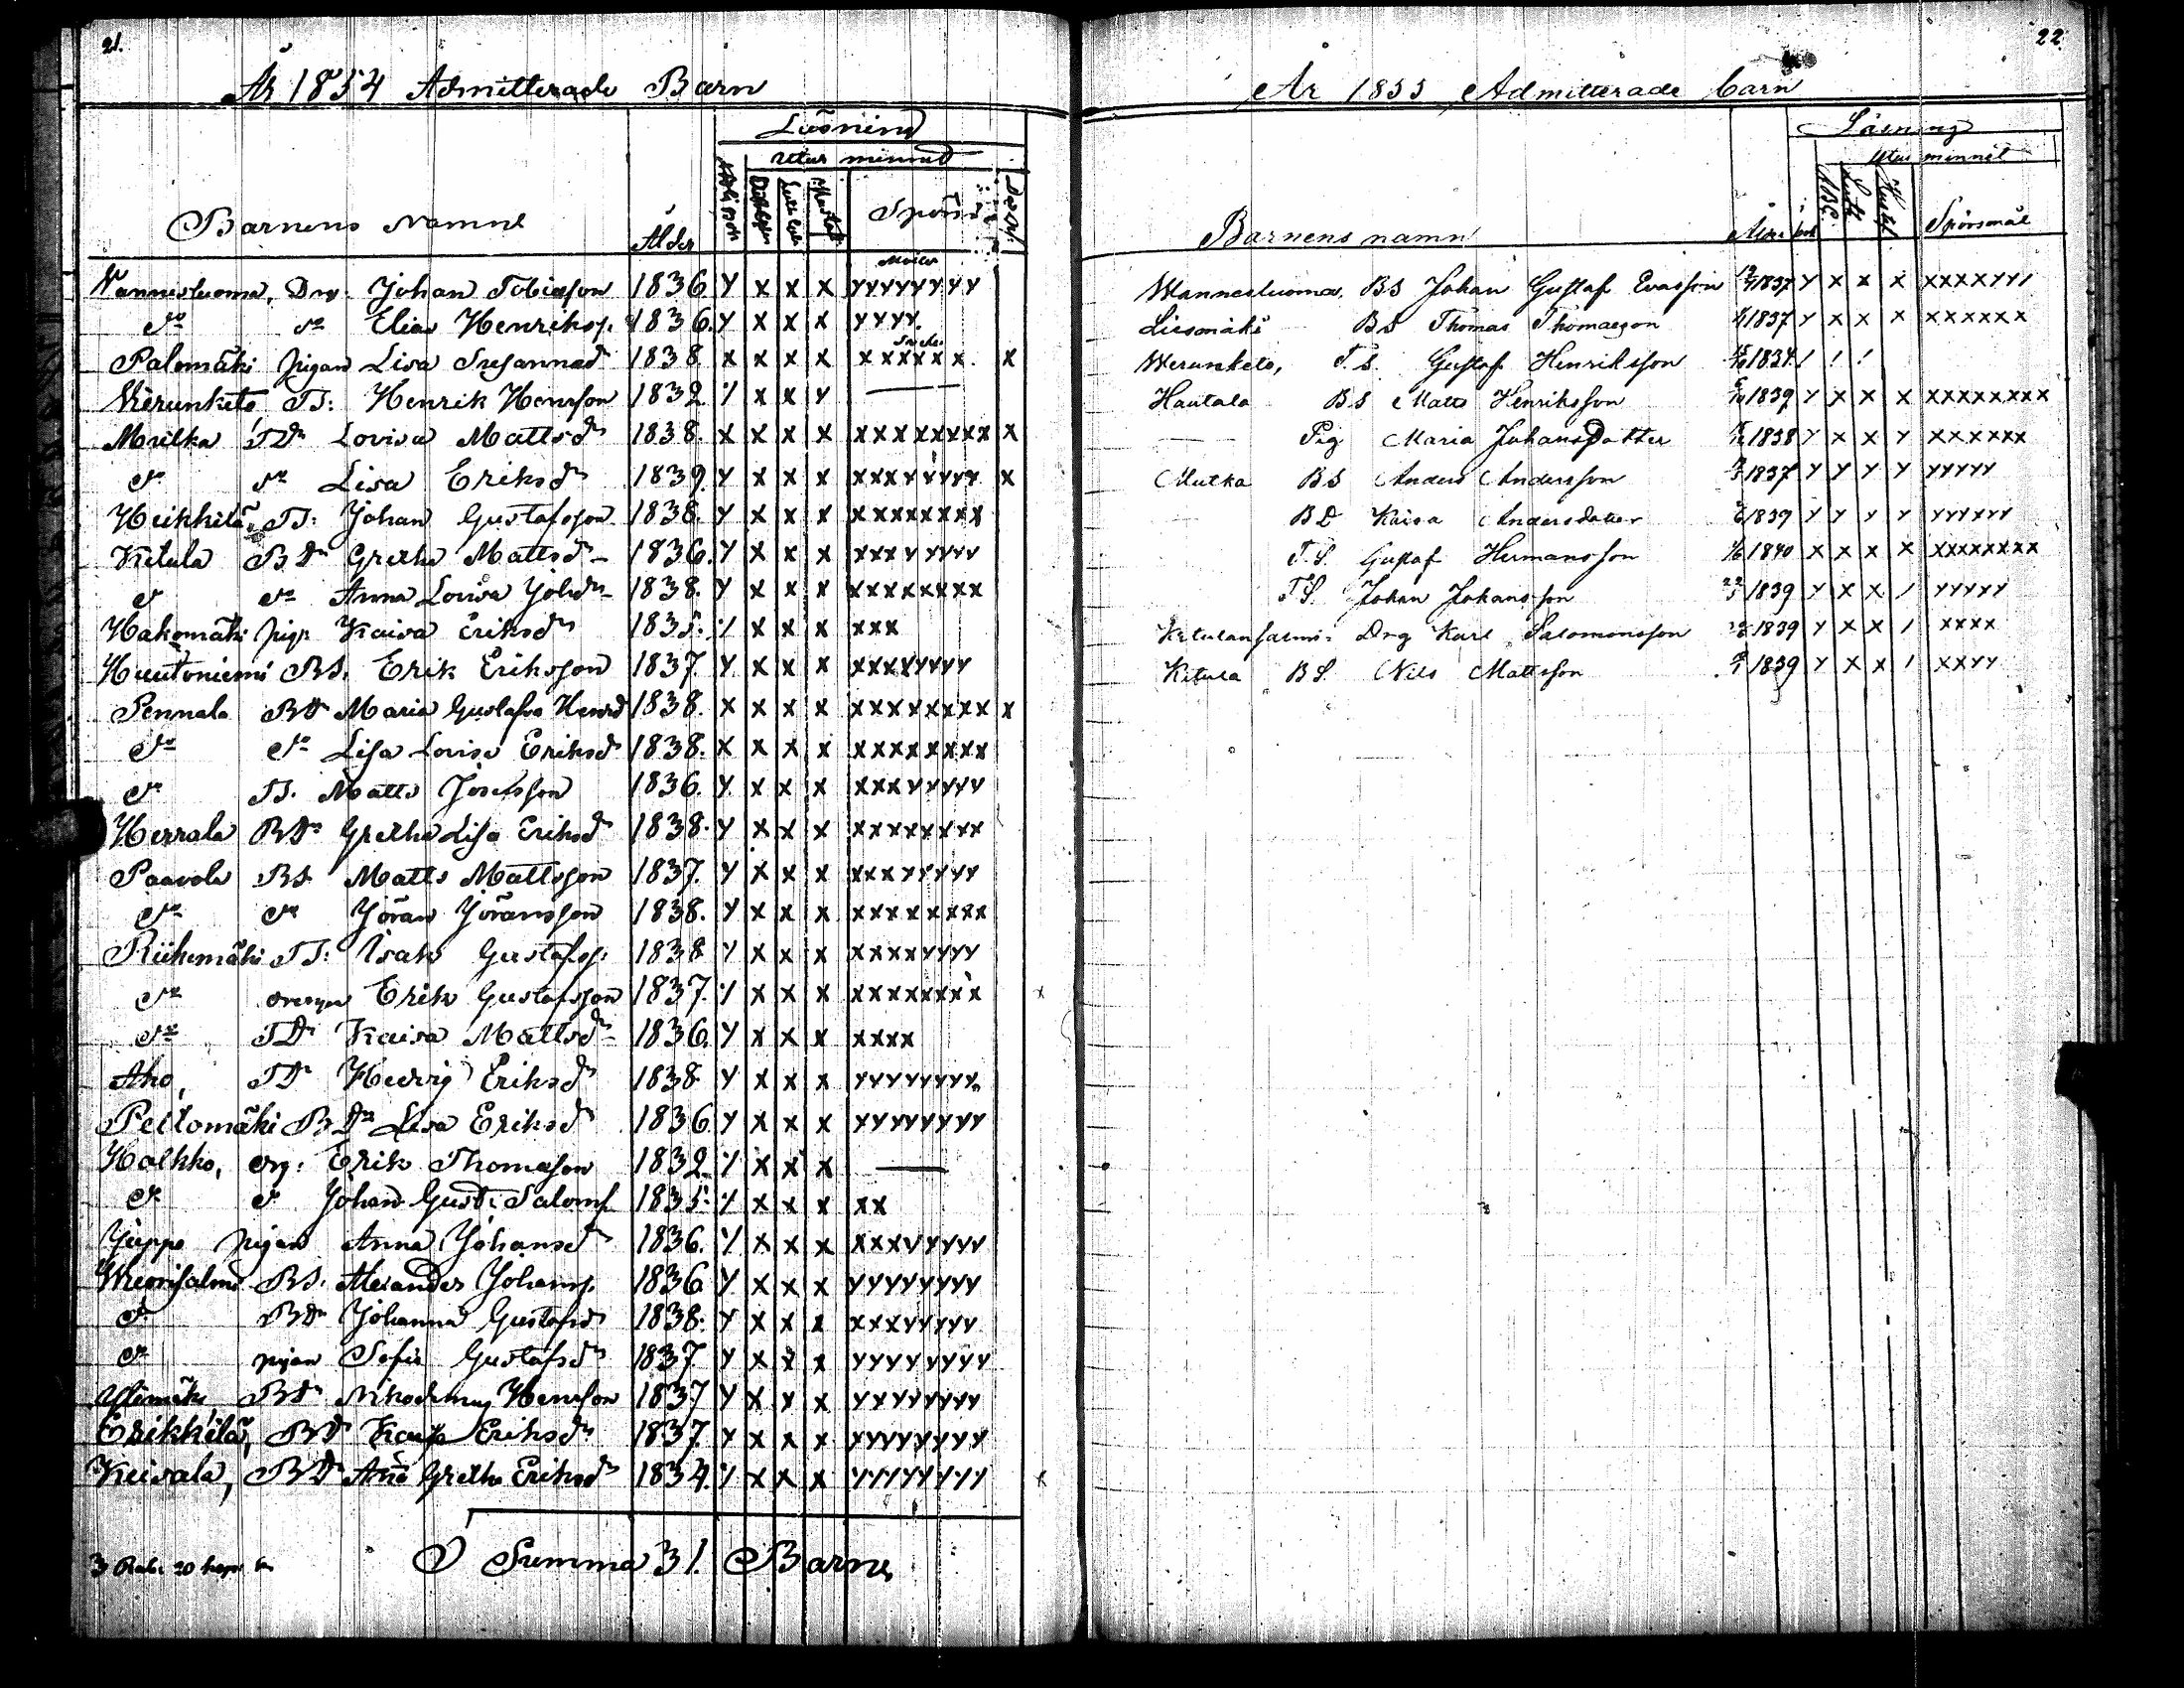 21.
År 1854 Admitterade Barn
Läsning
Utur minnet
Barnens Namne Ålder Spörsm
Wannesluoma, Drg. Johan Tobiasson 1836. Y X X X YYYYYYYY
do do Elias Henrikss. 1836. Y X X X YYYY.
Palomäki pigan Lisa Susannad 1838 X X X X XXXXXX. X
Wierunketo TS: Henrik Henrsson 1832 % X X Y —
Mutka TDr Lovisa Mattsdr 1838. X X X X XXXXXXXX X
do do Lisa Eriksdr 1839. Y X X X XXXYYYYY X
Heikkilä, TS: Johan Gustafsson 1838. Y X X X XXXXXXXX
Kitula BDr Gretha Mattsd 1836. Y X X X XXXYYYYY
do do Anna Lovisa Johdr 1838. Y X X X XXXXXXXX
Hakomäki pig. Kaisa Eriksdr 1835. % X X X XXX
Huutoniemi BS. Erik Eriksson 1837. Y X X X XXXXYYYY
Pennala BDr Maria Gustafva Henrd 1838. X X X X XXXXXXXX X
do do Lisa Lovisa Eriksdr 1838. X X X X XXXXXXXX
do TS. Matts Josefsson 1836. Y X X X XXXYYYYY
Herrala BDr Gretha Lisa Eriksdr 1838. Y X X X XXXXXXXX
Paavola BS Matts Mattsson 1837. Y X X X XXXYYYYY
do do Jöran Jöransson 1838. Y X X X XXXXXXXX
Riihimäki TS: Isak Gustafss. 1838 Y X X X XXXXYYYY
do Erik Gustafsson 1837. % X X X XXXXXXXX X
do TDr Kaisa Mattsdr 1836. Y X X X XXXX
Aho, TDr Hedvig Eriksdr 1838 Y X X X YYYYYYYY
Peltomäki BDr Lisa Eriksdr 1836 Y X X X YYYYYYYY
Halkko, drg: Erik Thomasson 1832. % X X X —
do do Johan Gust. Saloms. 1835. % X X X XX
Juppo pigan Anna Johansdr 1836. % X X X XXXYYYYY
BS. Alexander Johanss. 1836 Y X X X YYYYYYYY
do BDr Johanna Gustafsd 1838. Y X X X XXXYYYYY
do pigan Sofia Gustafsdr 1837 Y X X X YYYYYYYY
Ylimäki, BDr Nikodemus Henrsson 1837 Y X X X YXYYYYYY
Erikkilä, BDr Kaisa Eriksdr 1837. Y X X X XYYYYYYY
Keisala, BDr Anna Gretha Eriksdr 1834. % X X X YYYYYYYY X
Summa 31. Barn,
3 Rub. 20 kop.
22
År 1855 Admitterade barn
Läsning
Utur minnet
Barnens namn Spörsmål
Wannesluoma, BS Johan Gustaf Evasson 1837 Y X X X XXXXYYI
Liisamäki BS Thomas Thomasson 1837 Y X X X XXXXXX
Werunketo, T.S. Gustaf Henriksson 1834 ! ! !
Hautala BS Matts Henriksson 1839 Y X X X XXXXXXXX
— Pig Maria Johansdotter 1838 Y X X Y XXXXXX
Mutka BS Anders Andersson 1837 Y Y Y Y YYYYY
BD Kaisa Andersdotter 1839 Y Y Y Y YYYYYY
T.S. Gustaf Hermansson 1840 X X X X XXXXXXX
T.S. Johan Johansson 1839 Y X X I YYYYY
Kitulansalmi. Drg Karl Salomonsson 1839 Y X X I XXXX
Kitula BS. Nils Mattsson 1839 Y X X I XXYY